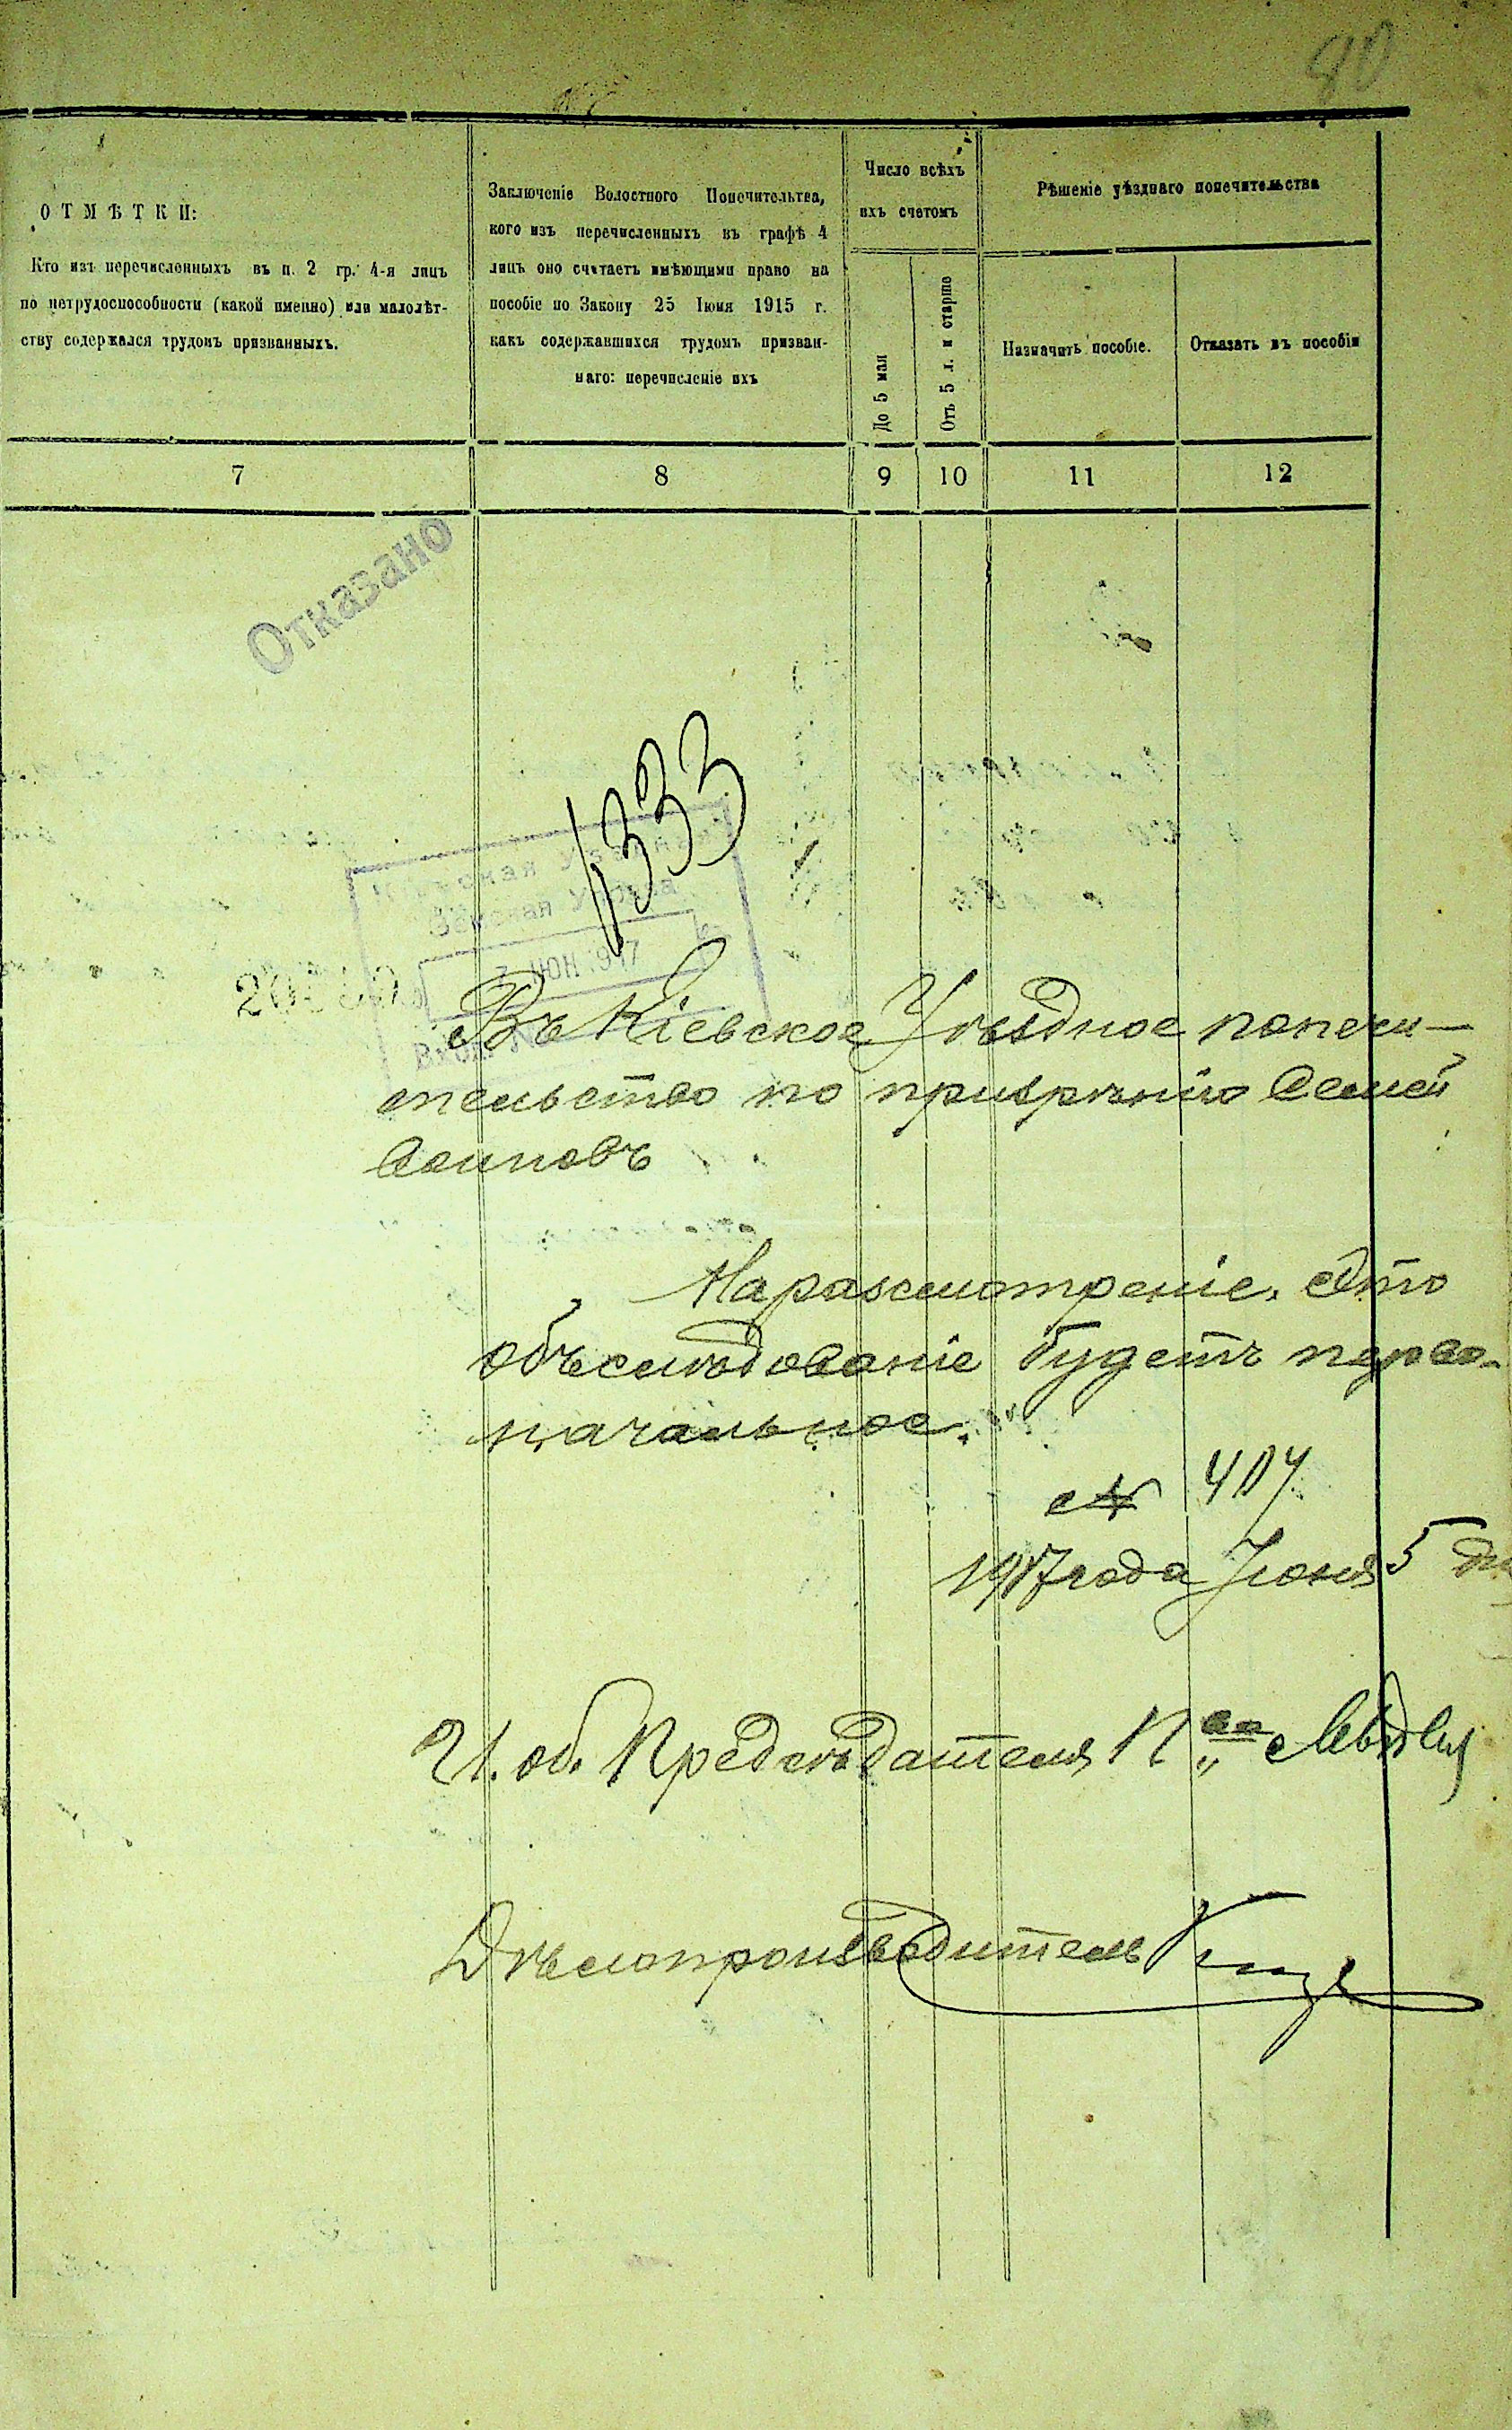 ОТМѢТКИ:
Кто изъ перечисленныхъ въ п. 2 гр. 4-я лицъ
по нетрудоспособности (какой именно) или малолѣт-
ству содержался трудомъ призванныхъ.
Заключеніе Волостного Попечительтва,
кого изъ перечисленныхъ въ графѣ 4
лицъ оно считаетъ имѣющими право на
пособіе по Закону 25 Іюня 1915 г.
какъ содержавшихся трудомъ призван-
наго: перечисленіе ихъ
Число всѣхъ
ихъ счетомъ
До 5 мая
Отъ 5 л. и старше
Рѣшеніе уѣзднаго попечительства
Назначить пособіе.
Отказать въ пособіи
7 8 9 10 11 12
Отказано
1333
Уѣздная
Земская Управа
ІЮН 1917
Въ Кіевское Уѣздное попечи-
тельство по призрѣнію Семей
Воиновъ
На разсмотреніе. Это
объслѣдованіе будетъ перво-
начальное.
№ 407
1917 года Іюня 5
И. об. Предсѣдателя П-ва
Дѣлопроизводитель